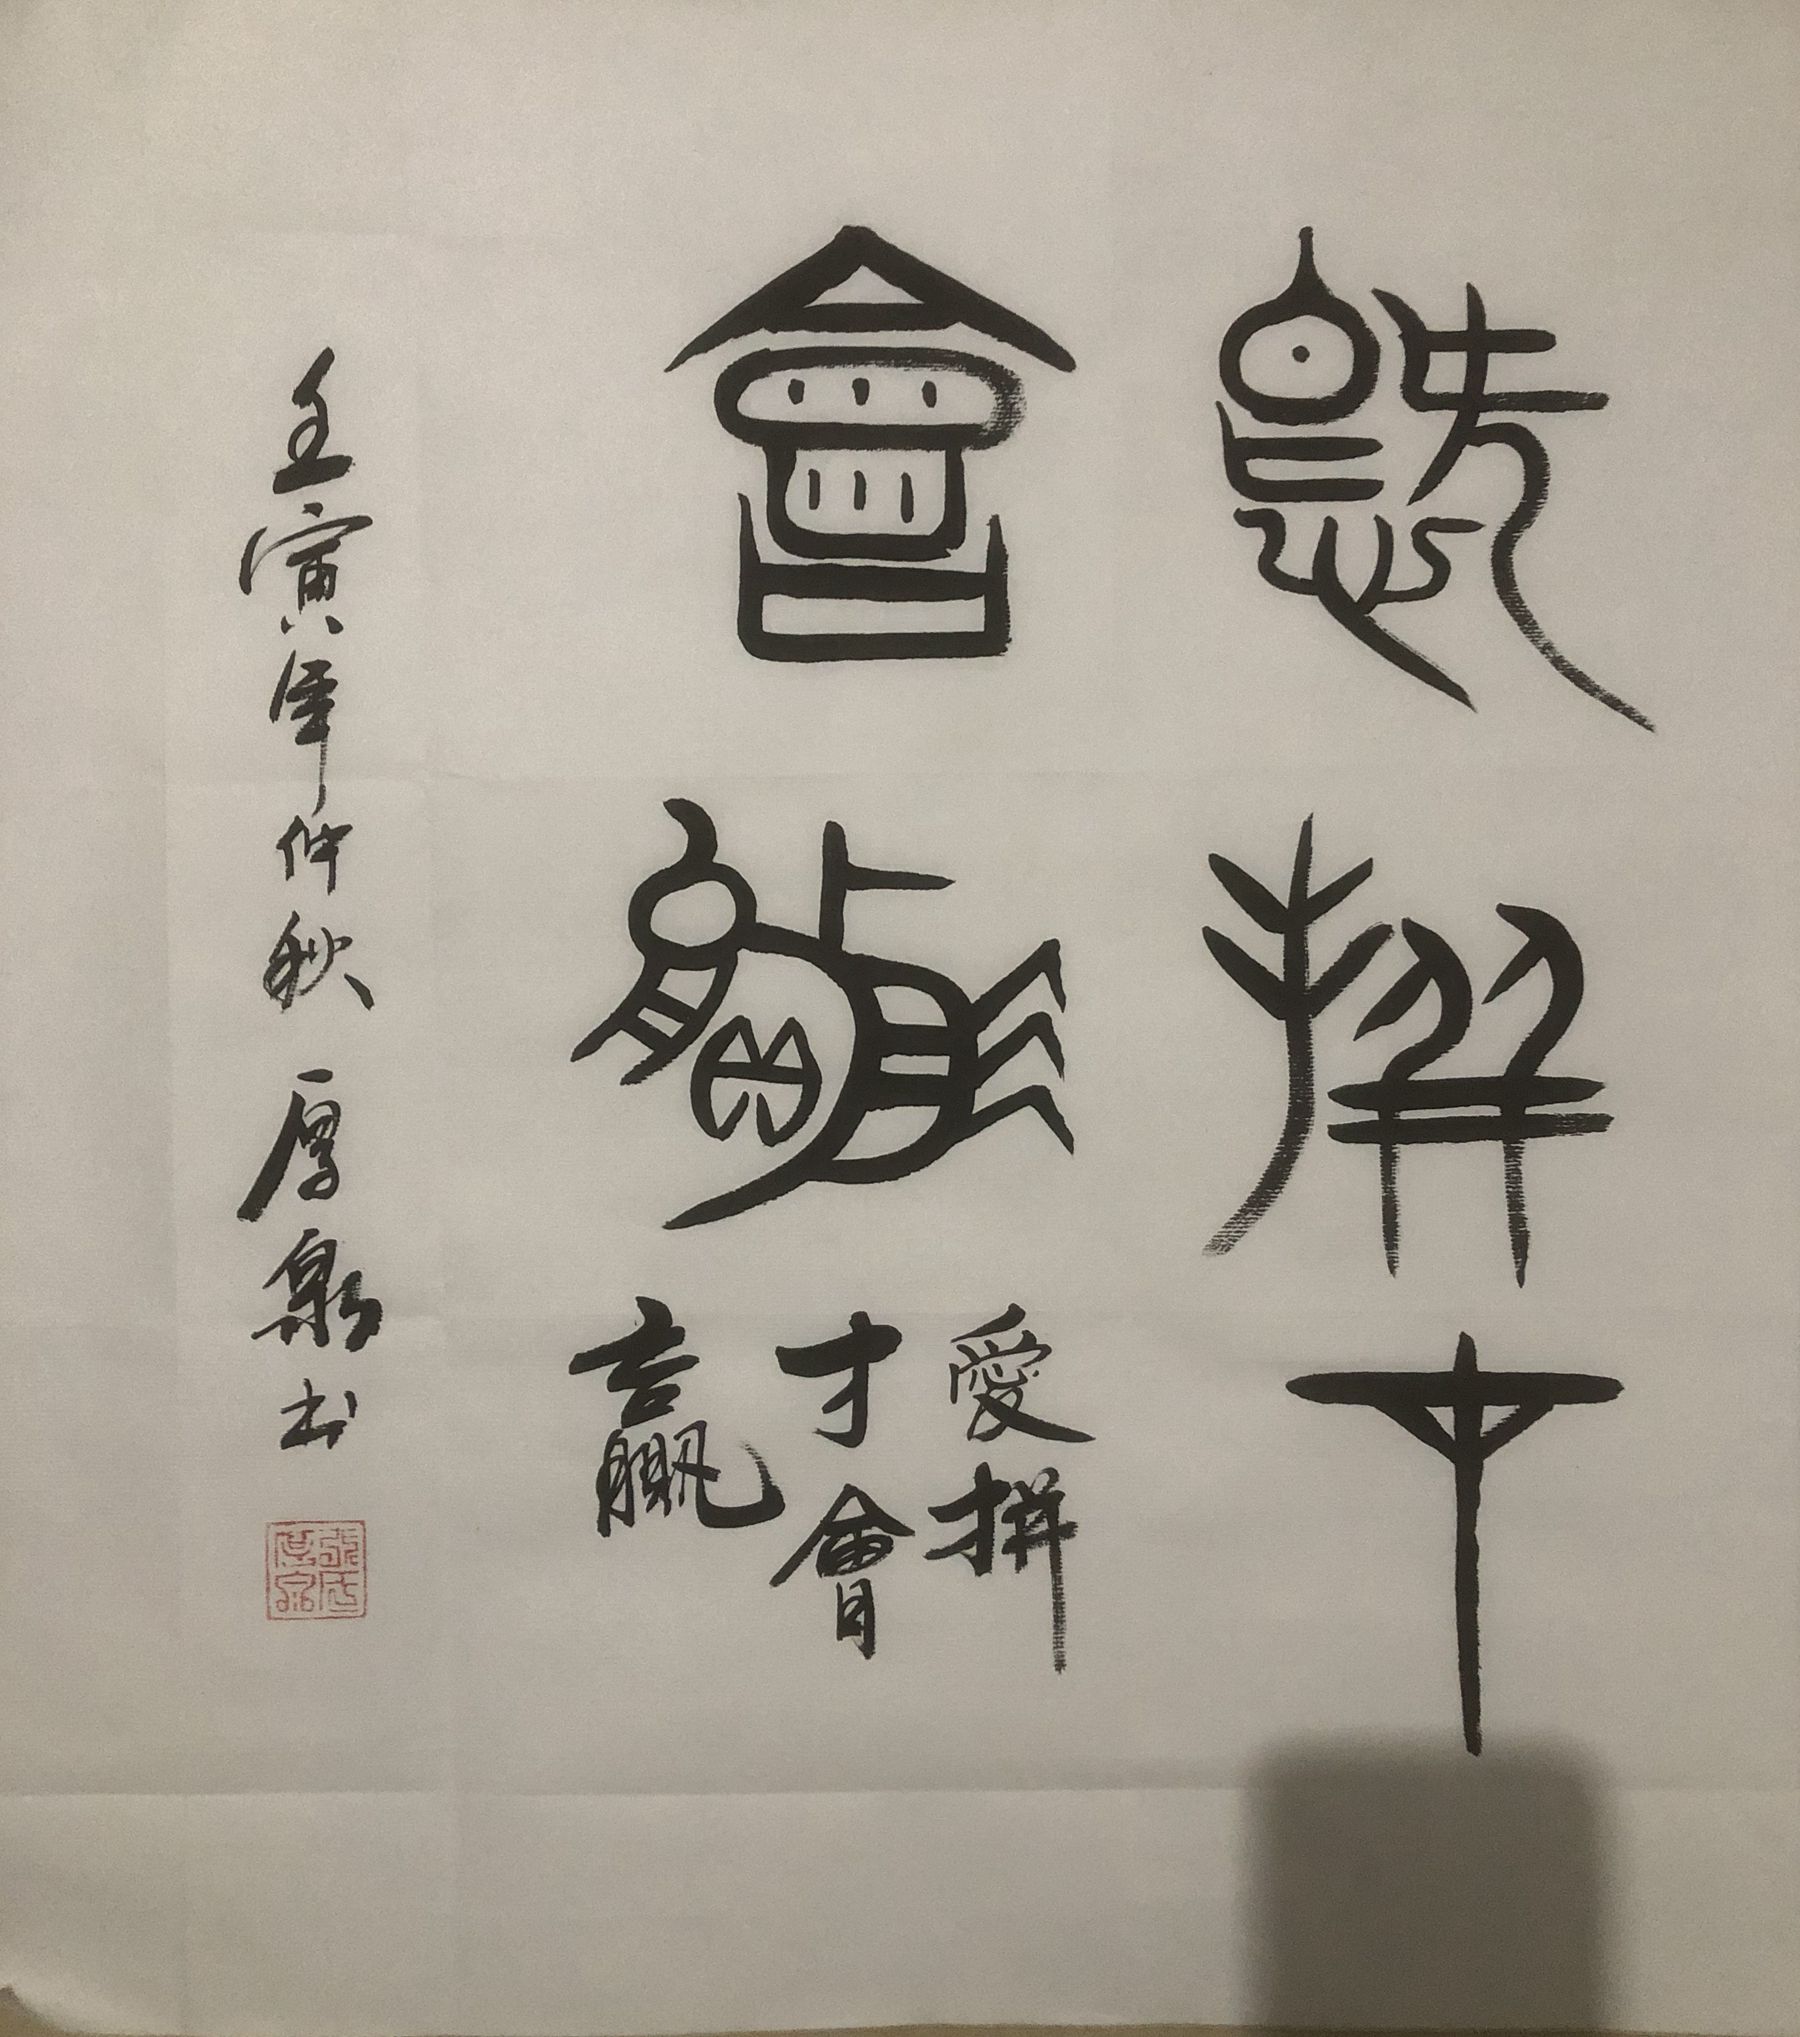 愛拼才
會贏
愛拼
才會
贏
壬寅年仲秋厚泉书